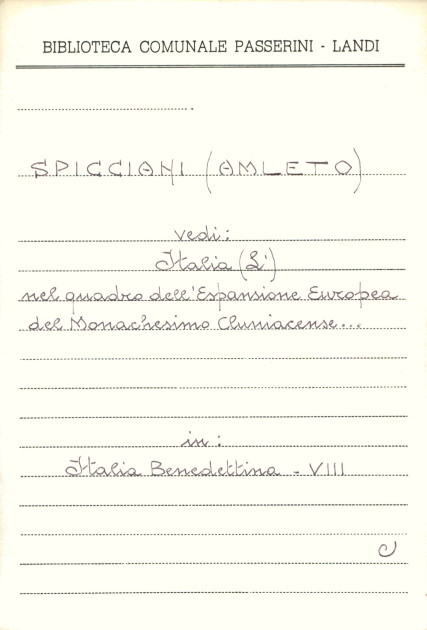 BIBLIOTECA COMUNALE PASSERINI - LANDI
SPICCIANI (AMLETO)
vedi:
Italia (L')
nel quadro dell'Espansione Europea
del Monachesimo Cluniacense...
in:
Italia Benedettina - VIII